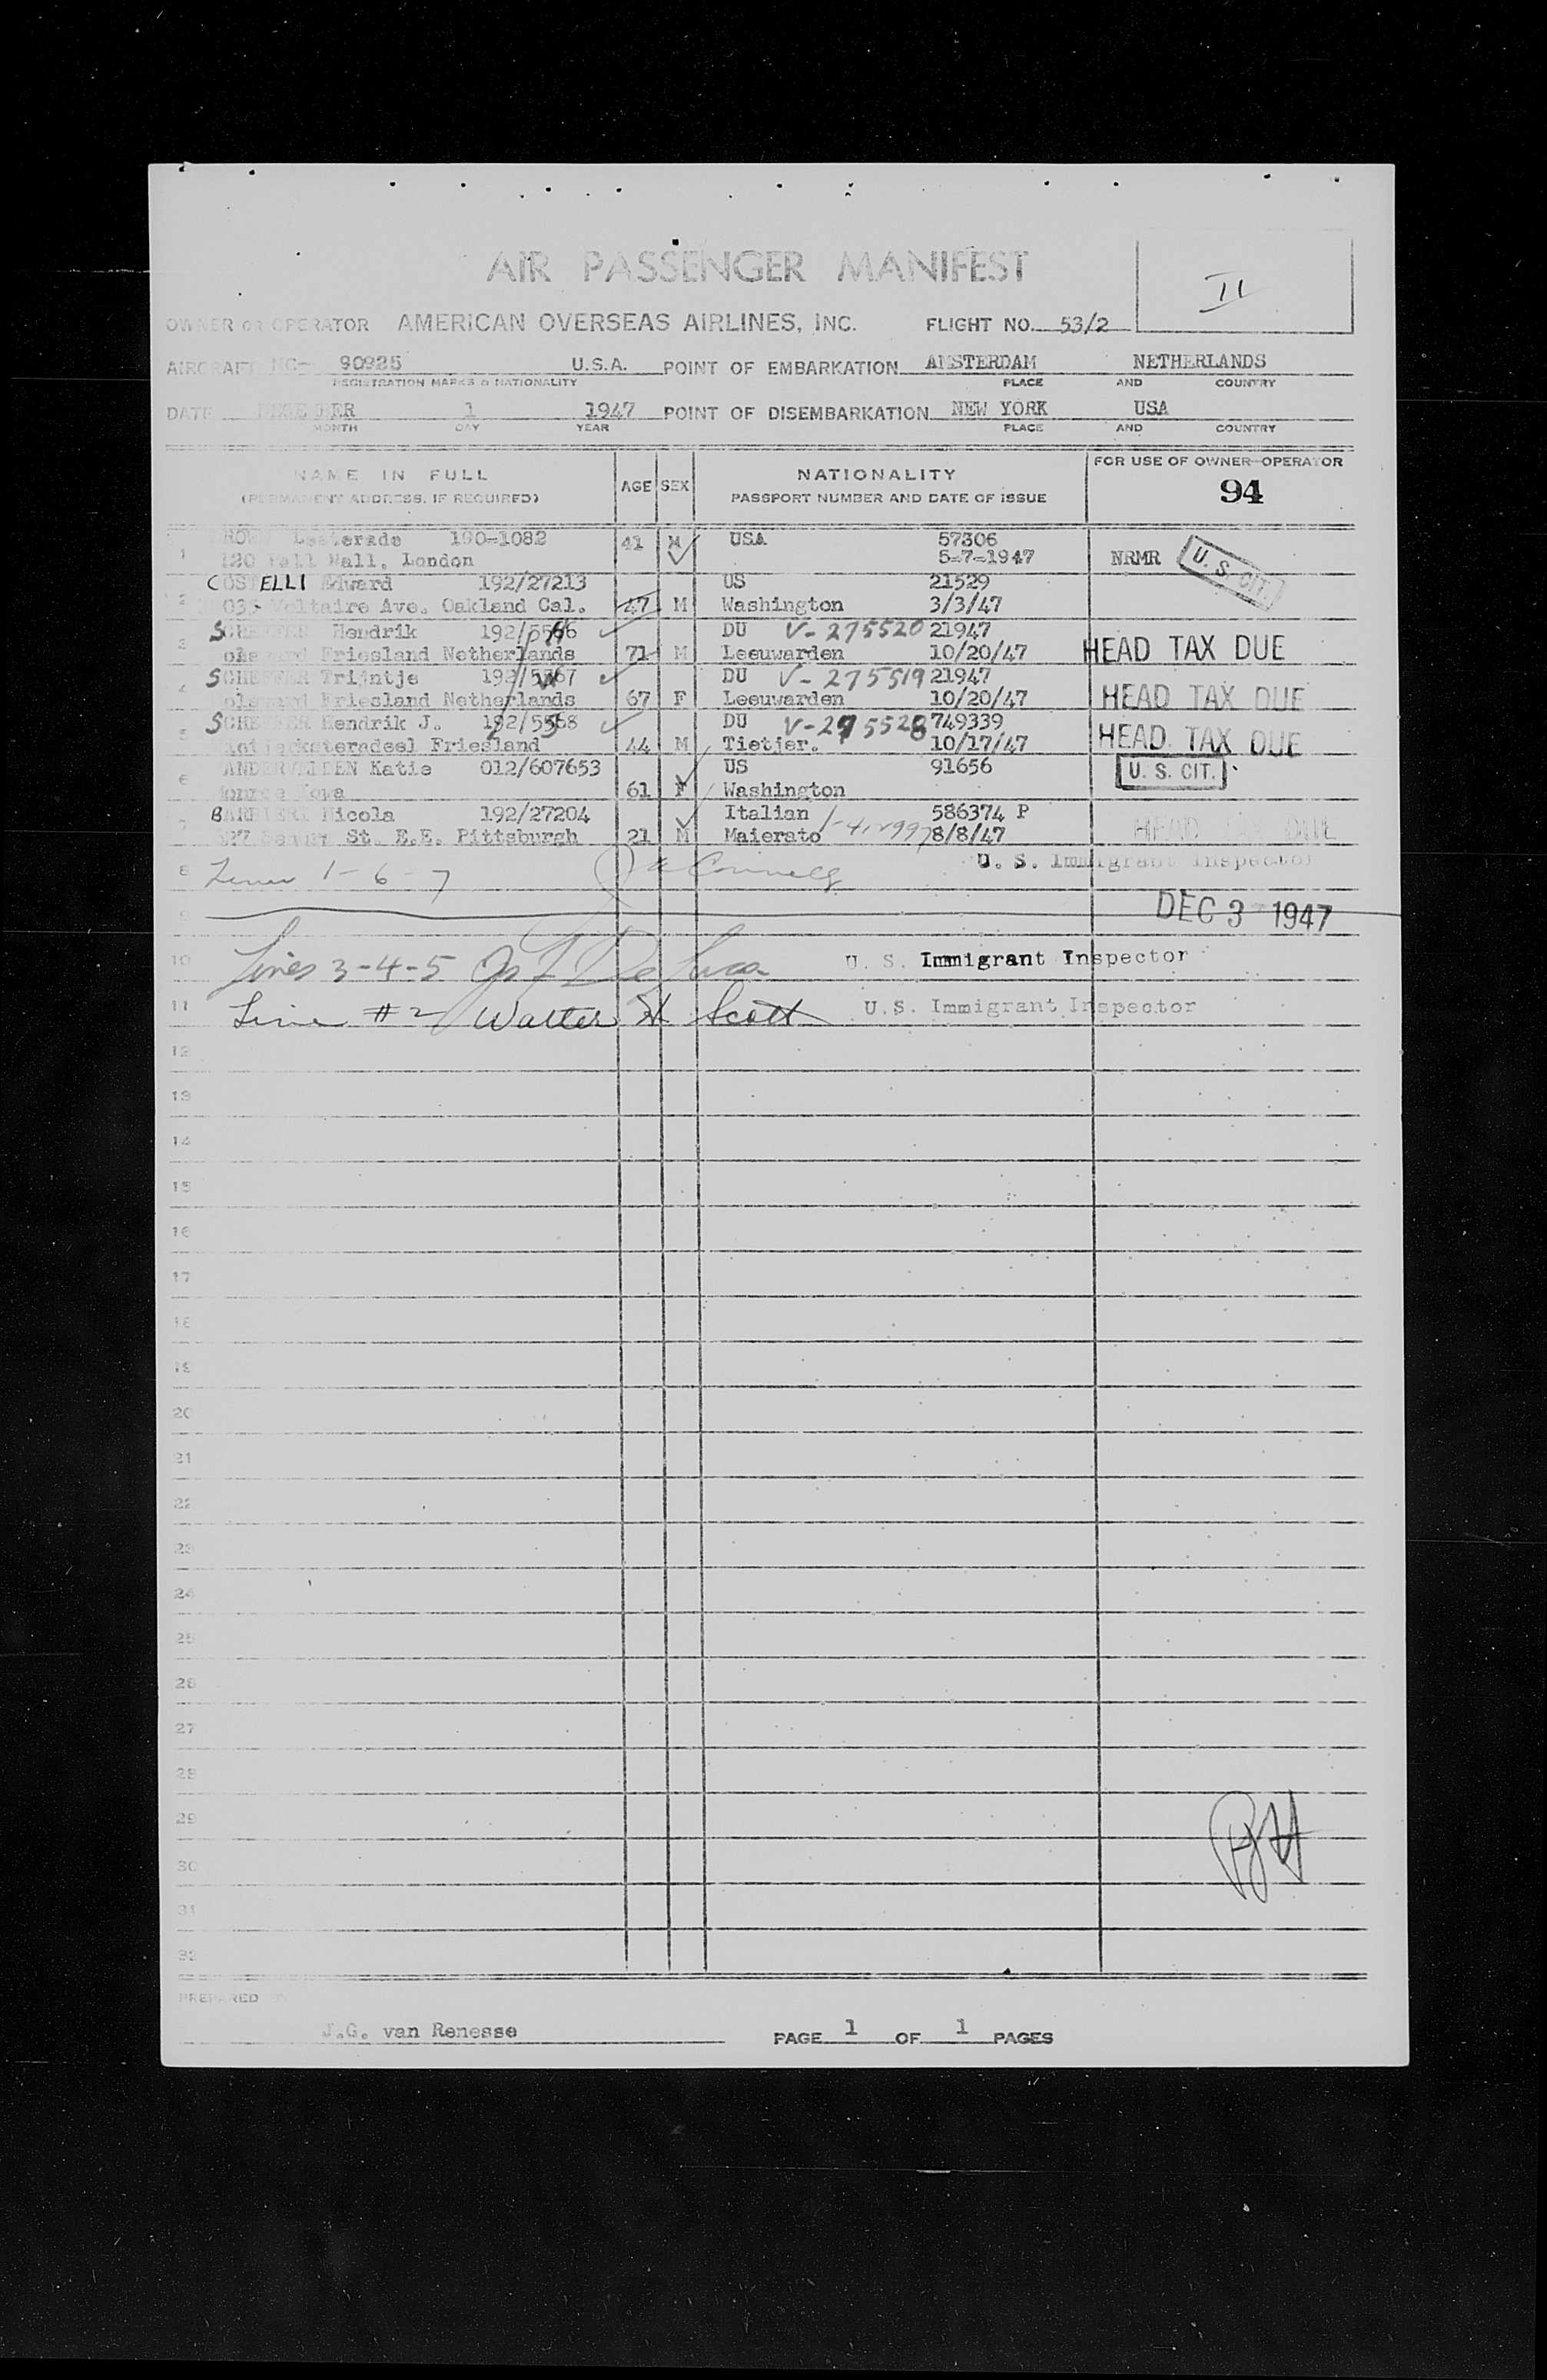 AIR PASSENGER MANIFEST
II
OWNER OR OPERATOR AMERICAN OVERSEAS AIRLINES, INC. FLIGHT NO. 53/2
AIRCRAFT NC- 90925 U.S.A. POINT OF EMBARKATION AMSTERDAM NETHERLANDS
REGISTRATION MARKS & NATIONALITY PLACE AND COUNTRY
DATE DECEMBER 1 1947 POINT OF DISEMBARKATION NEW YORK USA
MONTH DAY YEAR PLACE AND COUNTRY
NAME IN FULL AGE SEX NATIONALITY FOR USE OF OWNER-OPERATOR
(PERMANENT ADDRESS, IF REQUIRED) PASSPORT NUMBER AND DATE OF ISSUE 94
190-1082 41 M USA 57306
1 London 5-7-1947 NRMR U. S. CIT.
COSTELLI Edward 192/27213 US 21529
2 Voltaire Ave. Oakland Cal. 47 M Washington 3/3/47
Hendrik 192/5566 DU V-275520 21947
3 Friesland Netherlands 71 M Leeuwarden 10/20/47 HEAD TAX DUE
Trijntje 192/5567 DU V-275519 21947
4 Friesland Netherlands 67 F Leeuwarden 10/20/47 HEAD TAX DUE
Hendrik J. 192/5568 DU V-275528 749339
5 Friesland 44 M Tietjer. 10/17/47 HEAD TAX DUE
Katie 012/607653 US 91656 U. S. CIT.
6 Iowa 61 F Washington
Nicola 192/27204 Italian 586374 P
7 St. E.E. Pittsburgh 21 M Maierato 8/8/47 HEAD TAX DUE
8 1-6-7 U. S. Immigrant Inspector
9 DEC 3 1947
10 Lines 3-4-5 De Luca U. S. Immigrant Inspector
11 Line #2 Walter H Scott U.S. Immigrant Inspector
12
13
14
15
16
17
18
19
20
21
22
23
24
25
26
27
28
29
30
31
32
PREPARED BY
J.G. van Renesse PAGE 1 OF 1 PAGES